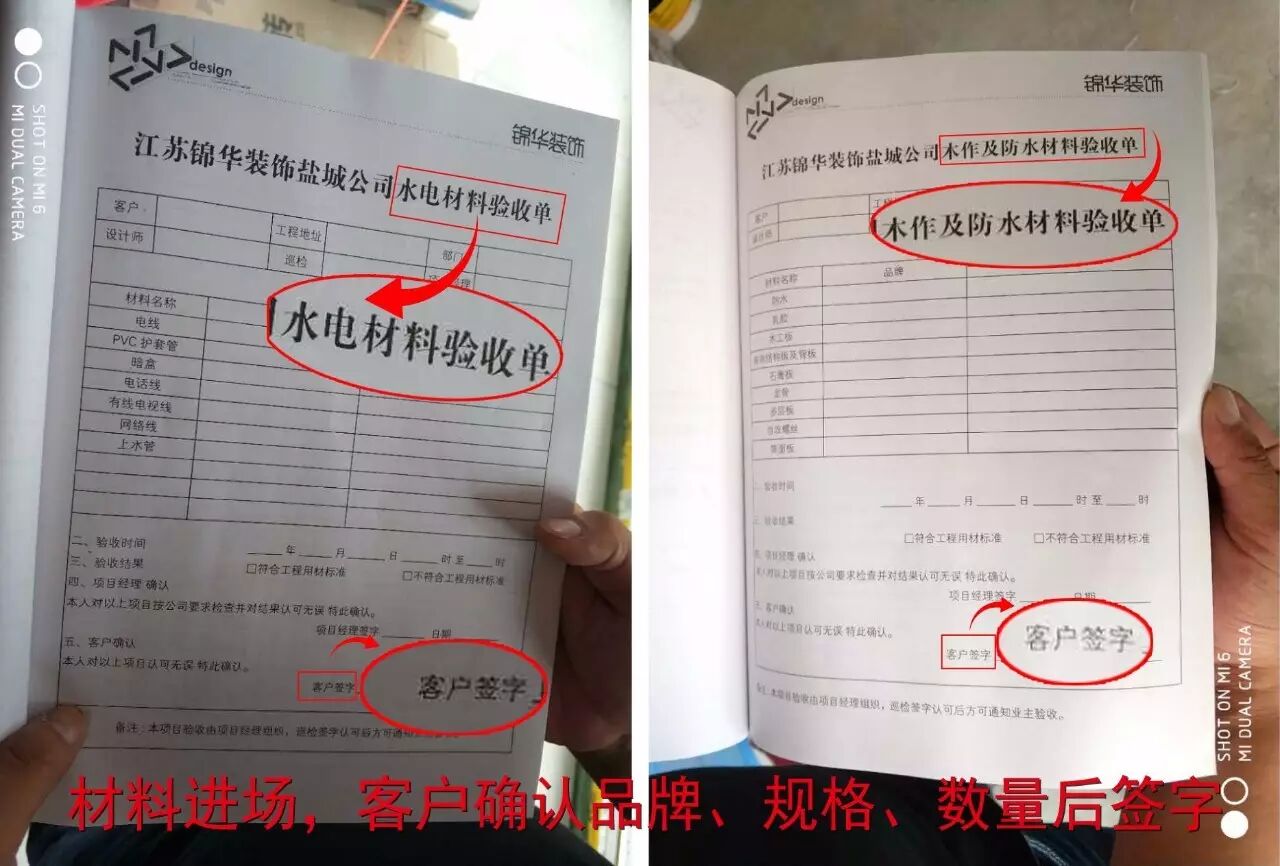 SHOT ON MI 6
MI DUAL CAMERA
design
锦华装饰
江苏锦华装饰盐城公司水电材料验收单
客户
工程地址
部门
设计师
巡检
材料名称
水电材料验收单
电线
PVC 护套管
暗盒
电话线
有线电视线
网络线
上水管
二、验收时间
年 月 日 时 至 时
三、验收结果
□符合工程用材标准 □不符合工程用材标准
四、项目经理 确认
本人对以上项目按公司要求检查并对结果认可无误 特此确认。
项目经理签字 日期
五、客户确认
本人对以上项目认可无误 特此确认。
客户签字
客户签字
备注:本项目验收由项目经理组织,巡检签字认可后方可通知业主验收。
design
锦华装饰
江苏锦华装饰盐城公司木作及防水材料验收单
客户
设计师
木作及防水材料验收单
材料名称 品牌
防水
乳胶
木工板
石膏板
龙骨
多层板
自攻螺丝
饰面板
二、验收时间
年 月 日 时 至 时
三、验收结果
□符合工程用材标准 □不符合工程用材标准
四、项目经理 确认
本人对以上项目按公司要求检查并对结果认可无误 特此确认。
项目经理签字 日期
五、客户确认
本人对以上项目认可无误 特此确认。
客户签字
客户签字
备注:本项目验收由项目经理组织,巡检签字认可后方可通知业主验收。
SHOT ON MI 6
MI DUAL CAMERA
材料进场,客户确认品牌、规格、数量后签字